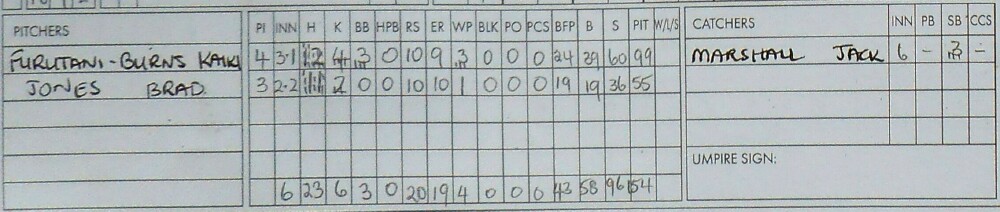 PITCHERS PI INN H K BB HPB RS ER WP BLK PO PCS BFP B S PIT W/L/S CATCHERS INN PB SB CCS
FURUTANI-BURNS KAIKI 4 3.1 12 4 3 0 10 9 3 0 0 0 24 39 60 99 MARSHALL JACK 6 - 3 -
JONES BRAD 3 2.2 2 0 0 10 10 1 0 0 0 19 19 36 55
UMPIRE SIGN:
6 23 6 3 0 20 19 4 0 0 0 43 58 96 154